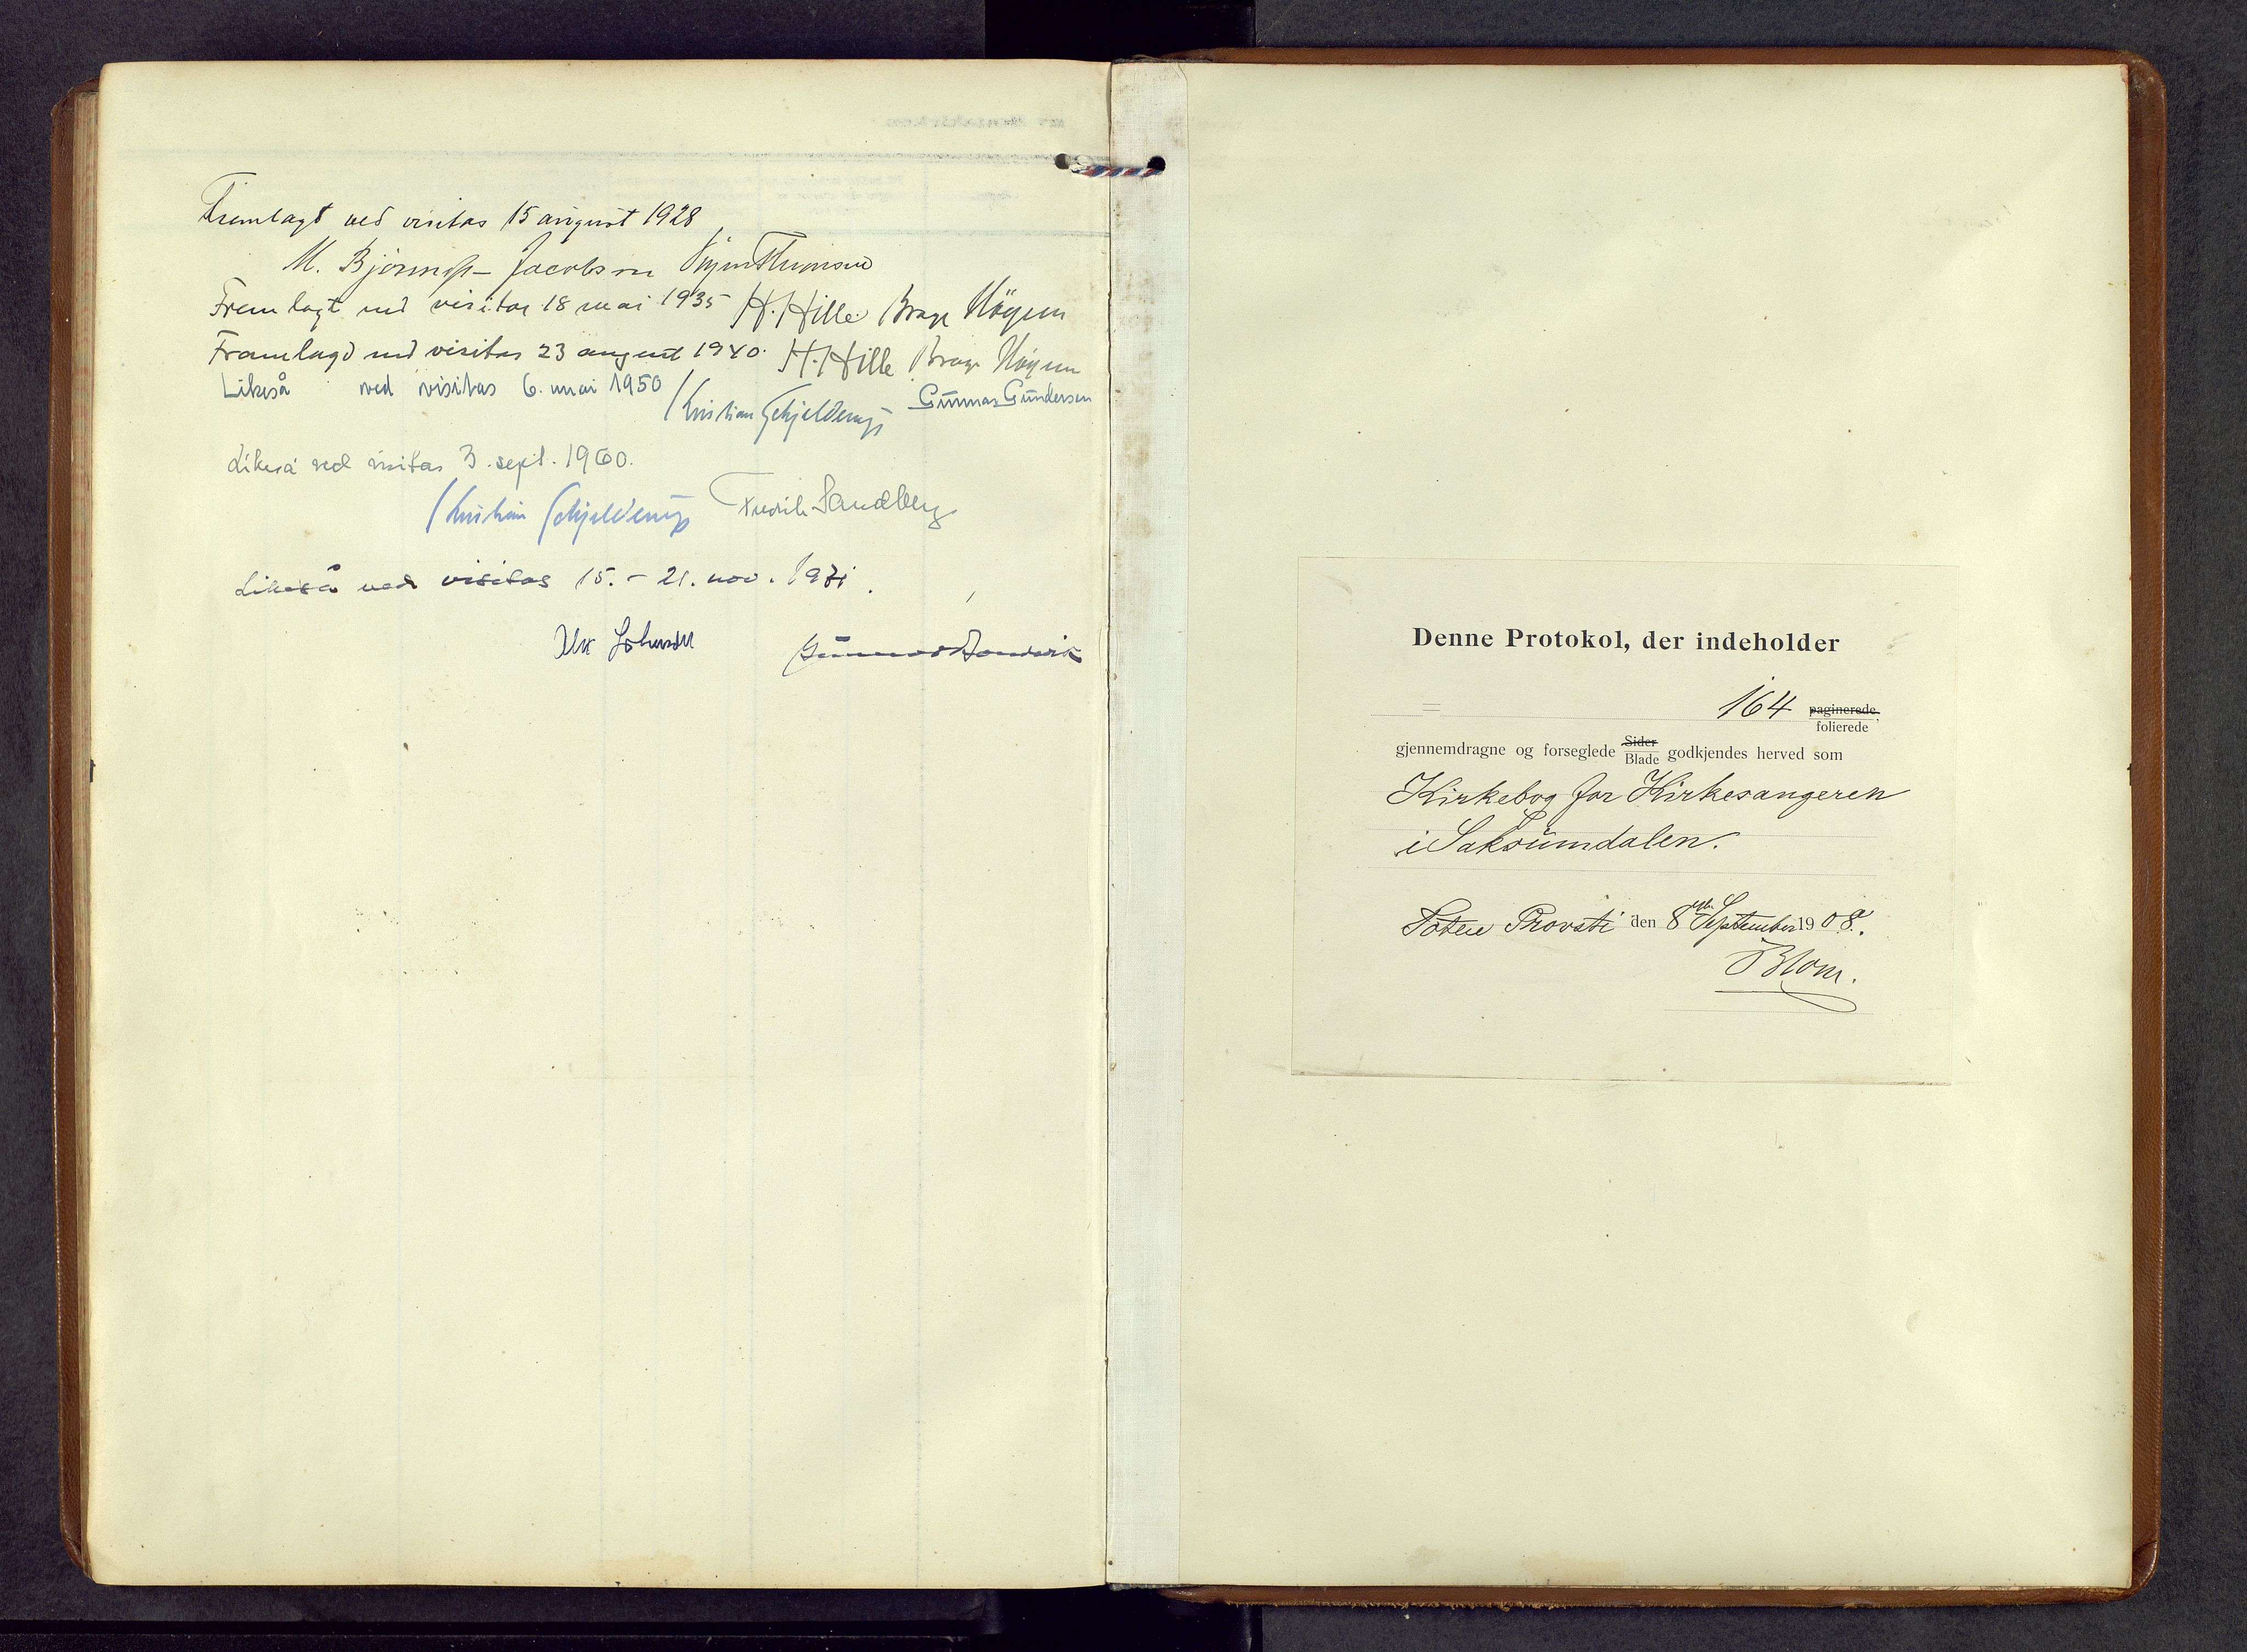 Fremlagt ved visitas 15 august 1928
M. Bjønness-Jacobsen
Fremlagt ved visitas 18 mai 1935 H. Hille Brage Høyem
Framlagd ved visitas 23 august 1940. H. Hille Brage Høyem
Likeså ved visitas 6. mai 1950 Kristian Schjelderup Gunnar Gundersen
Likeså ved visitas 3. sept. 1960.
Kristian Schjelderup Fredrik Sandberg
Likeså ved visitas 15. - 21. nov. 1971.
Alex Johnson
Denne Protokol, der indeholder
= 164 paginerede,
folierede
gjennemdragne og forseglede Sider
Blade godkjendes herved som
Kirkebog for Kirkesangeren
i Saksumdalen.
Toten Provsti den 8de September 1908.
Blom.